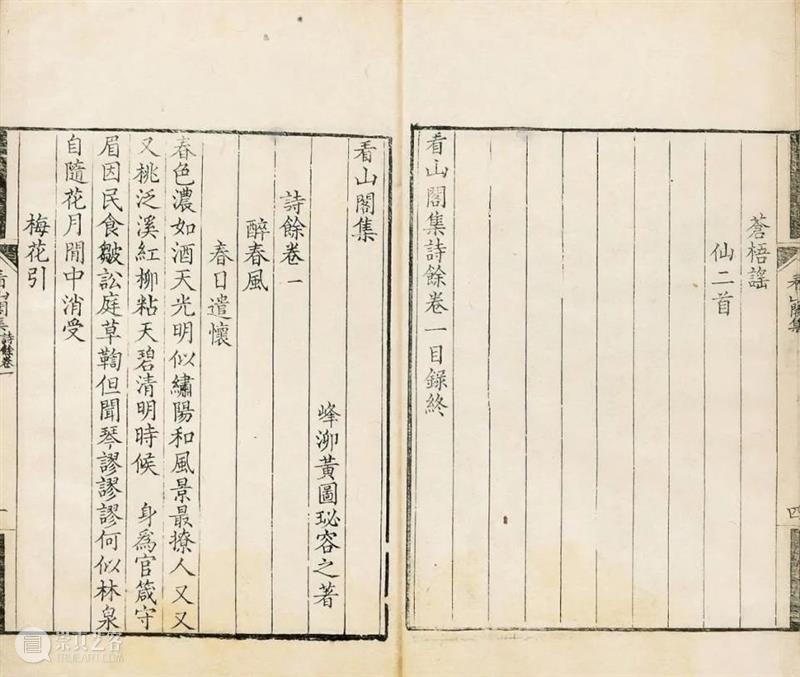 蒼梧謠
仙二首
看山閣集詩餘卷一目錄終
看山閣集
四
看山閣集
峰泖黃圖珌容之著
詩餘卷一
醉春風
春日遣懷
春色濃如酒天光明似繡陽和風景最撩人又又
又桃泛溪紅柳粘天碧清明時候　身爲官箴守
眉因民食皺訟庭草鞫但聞琴謬謬謬何似林泉
自隨花月閒中消受
梅花引
看山閣集
詩餘卷一
一
崇真艺客
TRUEART.COM